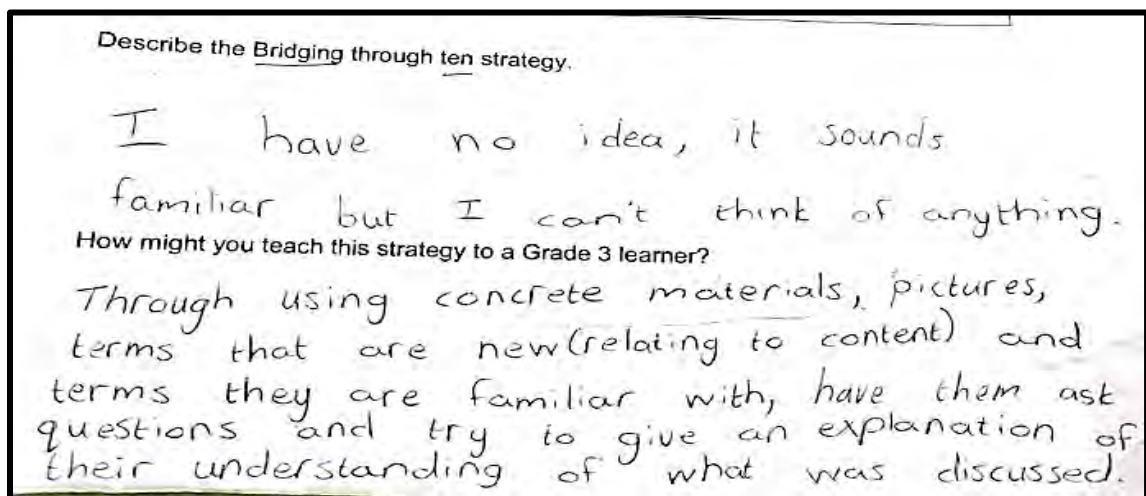 Describe the Bridging through ten strategy.
I have no idea, it sounds
familiar but I can't think of anything.
How might you teach this strategy to a Grade 3 learner?
Through using concrete materials, pictures,
terms that are new (relating to content) and
terms they are familiar with, have them ask
questions and try to give an explanation of
their understanding of what was discussed.